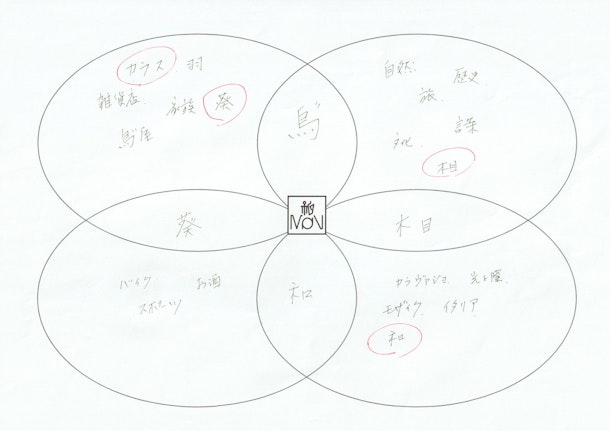 カラス 羽
雑貨店 家族 葵
自然 歴史
旅
言葉
文化
木目
葵
MON
木目
バイク お酒
スポーツ
和
カラヴァジョ 光と陰
モザイク イタリア
和